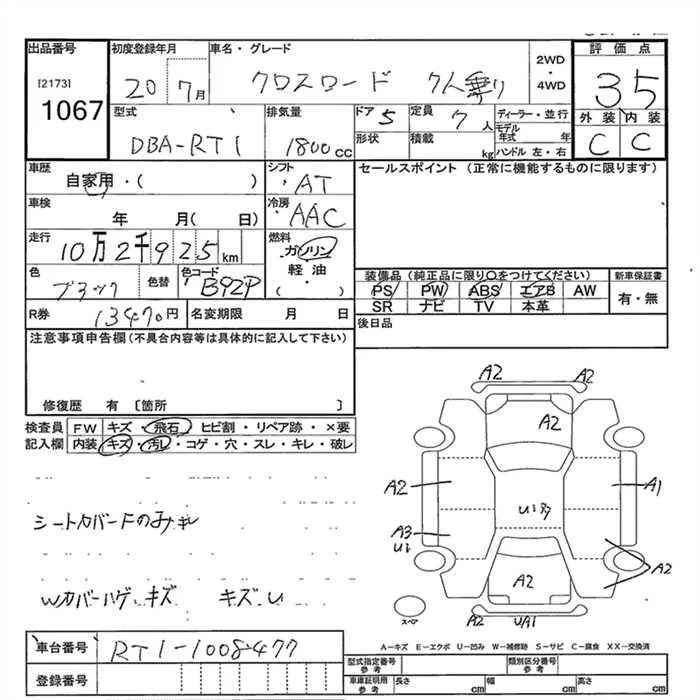 出品番号
[2173]
1067
初度登録年月
20 7月
車名・グレード
クロスロード 7人乗り
2WD
・
4WD
評価点
35
外装 内装
C C
型式
DBA-RT1
排気量
1800cc
ドア 5
形状
定員 7人
積載 kg
ディーラー・並行
モデル年式 年
ハンドル 左・右
車歴
自家用・( )
シフト
・AT
セールスポイント (正常に機能するものに限ります)
車検
年 月( 日)
冷房
・AAC
走行
10万2千925km
燃料
ガソリン
軽油
・( )
色
ブラック
色替
色コード
B92P
装備品 (純正品に限り○をつけてください)
PS PW ABS エアB AW
SR ナビ TV 本革
新車保証書
有・無
R券
13470円
名変期限 月 日
後日品
注意事項申告欄(不具合内容等は具体的に記入して下さい)
修復歴 有 〔箇所 〕
検査員記入欄
FW キズ・飛石・ヒビ割・リペア跡・×要
内装 キズ・汚レ・コゲ・穴・スレ・キレ・破レ
Wカバーハゲ、キズ キズ、U
A2 A2
A2
A2 A1
U1
A3
U1
A2
A2
A2 UA1
スペア
A-キズ E-エクボ U-凹み W-補修跡 S-サビ C-腐食 XX-交換済
車台番号
RT1-1008477
登録番号
型式指定番号
参考
類別区分番号
参考
車庫証明用
参考
長さ cm
幅 cm
高さ cm